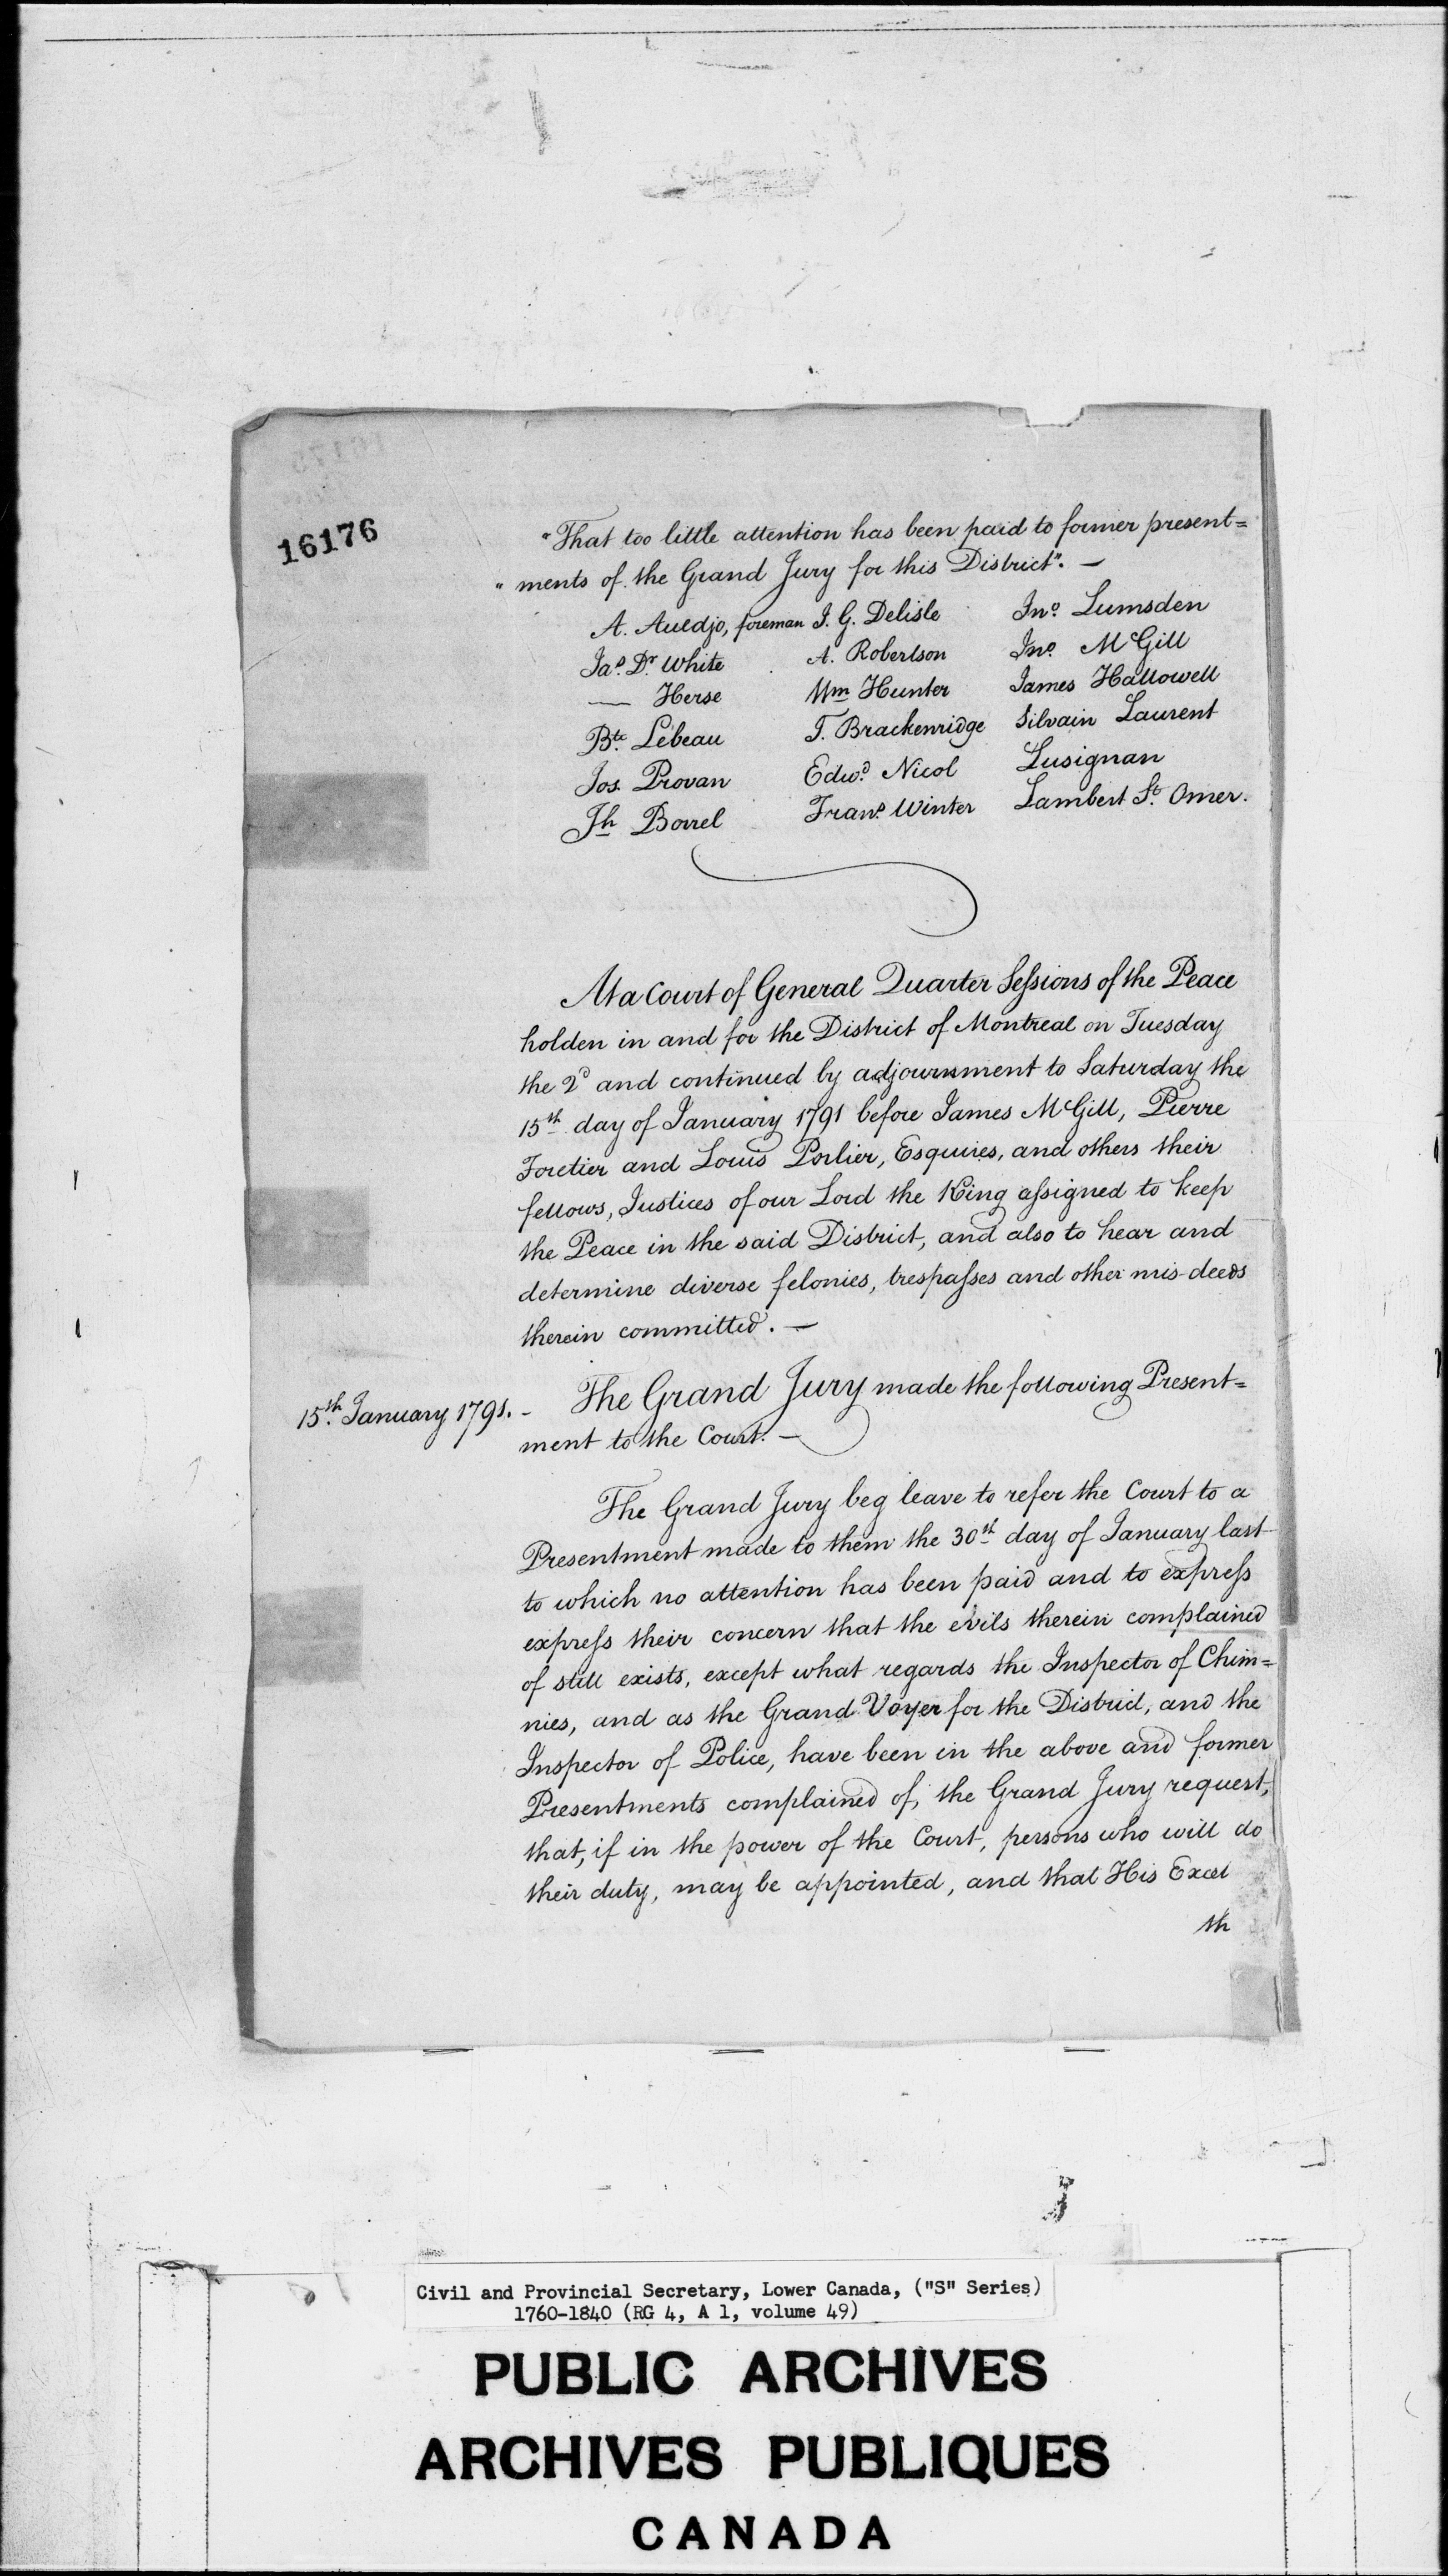 16176
"That too little attention has been paid to former present=
" ments of the Grand Jury for this District". —
A. Auldjo, foreman J. G. Delisle Jno. Lumsden
Jas. Dr. White A. Robertson Jno. McGill
— Herse Wm Hunter James Hallowell
Bte. Lebeau T. Brackenridge Silvain Laurent
Jos. Provan Edwd. Nicol Lusignan
Jh Borrel Frans. Winter Lambert St. Omer.
At a Court of General Quarter Sessions of the Peace
holden in and for the District of Montreal on Tuesday
the 2d and continued by adjournment to Saturday the
15th day of January 1791 before James McGill, Pierre
Foretier and Louis Porlier, Esquires, and others their
fellows, Justices of our Lord the King assigned to keep
the Peace in the said District, and also to hear and
determine diverse felonies, trespasses and other mis-deeds
therein committed. —
15th. January 1791. - The Grand Jury made the following Present=
ment to the Court. —
The Grand Jury beg leave to refer the Court to a
Presentment made to them the 30th day of January last
to which no attention has been paid and to express
express their concern that the evils therein complained
of still exists, except what regards the Inspector of Chim=
nies, and as the Grand Voyer for the District, and the
Inspector of Police, have been in the above and former
Presentments complained of, the Grand Jury request,
that, if in the power of the Court, persons who will do
their duty, may be appointed, and that His Excel
th
Civil and Provincial Secretary, Lower Canada, ("S" Series)
1760-1840 (RG 4, A 1, volume 49)
PUBLIC ARCHIVES
ARCHIVES PUBLIQUES
CANADA